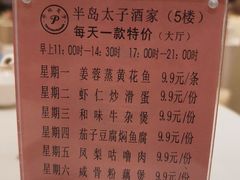 半岛太子酒家(5楼)
每天一款特价(大厅)
早上11:00时-14:30时 17:00时-21:00时
星期一 姜蓉蒸黄花鱼 9.9元/条
星期二 虾仁炒滑蛋 9.9元/份
星期三 和味牛杂煲 9.9元/份
星期四 茄子豆腐焖鱼腐 9.9元/份
星期五 凤梨咕噜肉 9.9元/份
星期六 咸骨粉藕煲 9.9元/份